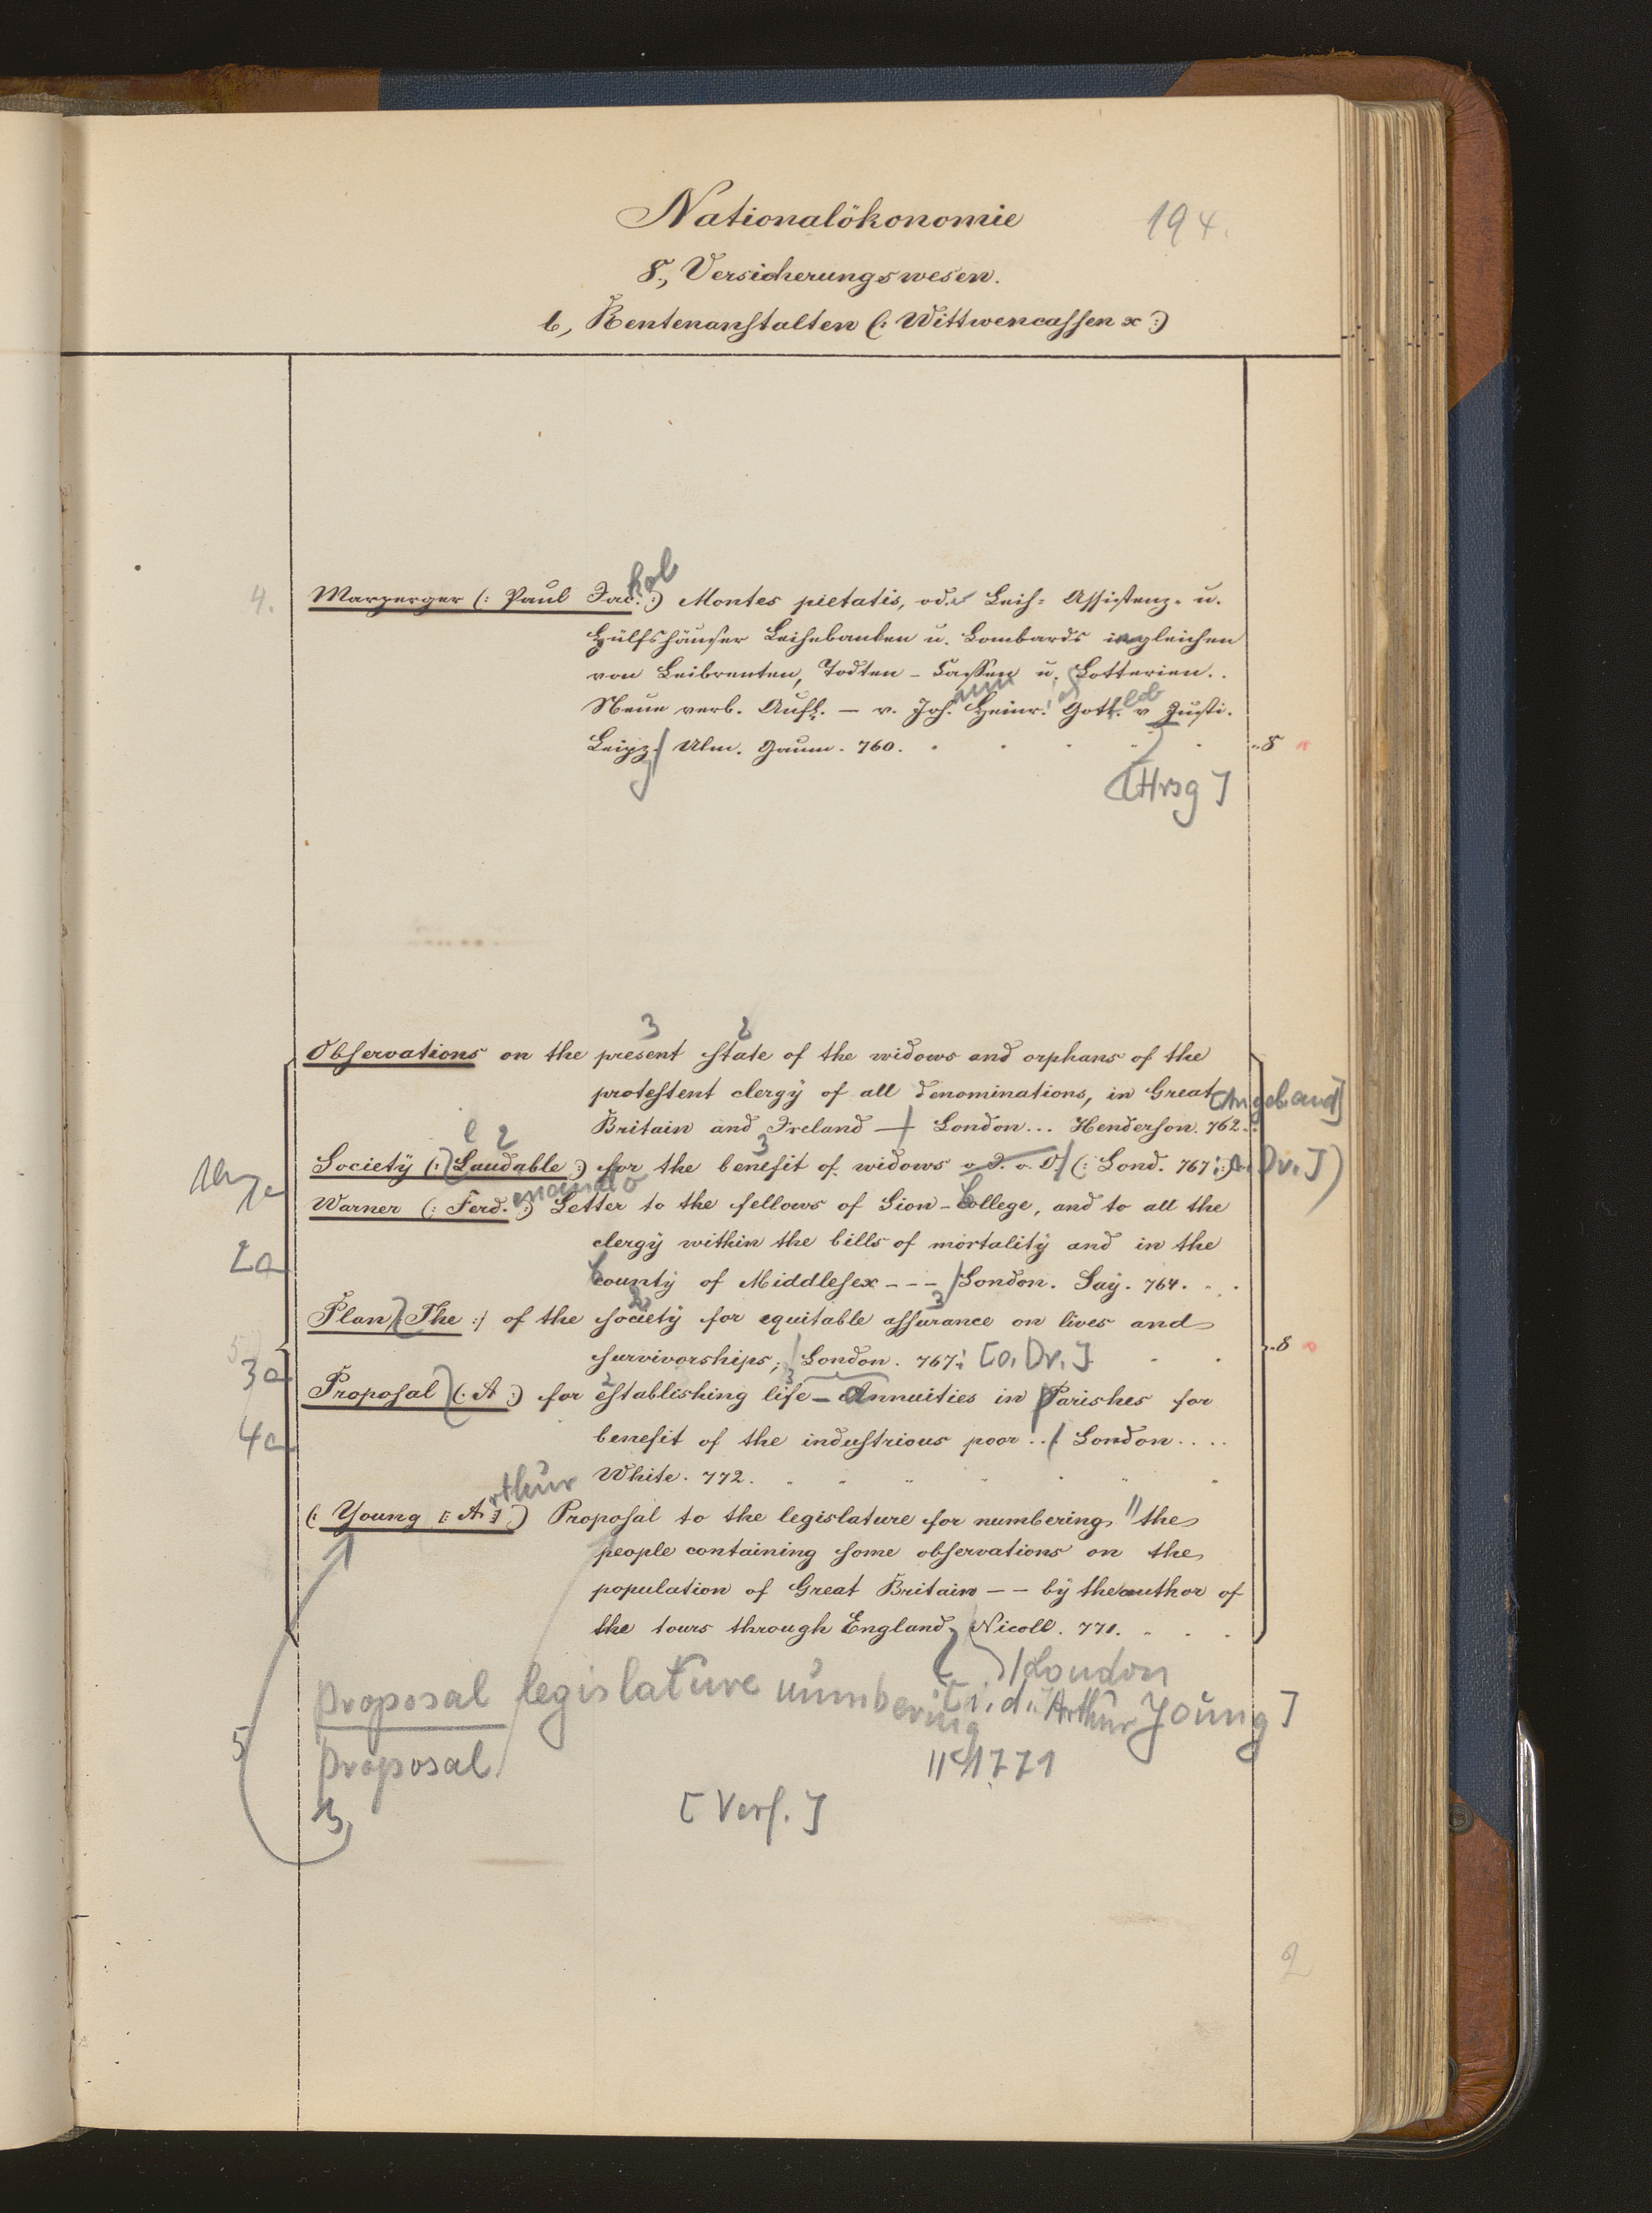 Nationalökonomie
194.
8., Versicherungswesen.
b, Rentenanstalten (: Wittwencassen x :)
4. Marperger (: Paul Jac. :) Montes pietatis, oder Leih= Assistenz- u.
kob
Hülfshäuser Leihebanken u. Lombards ingleichen
von Leibrenten, Todten-Cassen u. Lotterien..
Neue verb. Aufl. — v. Joh. Heinr. Gottl. v Justi.
ann
lob
Leipz. Ulm. Gaum. 760. ..8
[Hrsg]
3 2
Observations on the present state of the widows and orphans of the
protestent clergy of all denominations, in Great
[Angeband]
Britain and Ireland — London... Henderson. 762..
e 2 3
Society (: Laudable :) for the benefit of widows o. J. o. D. (: Lond. 767 :) [o. Dr.]
1a Warner (: Ferd. :) Letter to the fellows of Sion-College, and to all the
2a clergy within the bills of mortality and in the
county of Middlesex - - - London. Say. 764. . .
Plan (: The :) of the society for equitable assurance on lives and
survivorships; London. 767; [o. Dr.] ..8
3a Proposal (: A :) for establishing life-Annuities in Parishes for
4a benefit of the industrious poor .. London....
White. 772.
(: Young [: A :] ) Proposal to the legislature for numbering the
rthur
people containing some observations on the
population of Great Britain — — by the author of
the tours through England, Nicoll. 771.
London
Proposal legislature numbering [i. d. i. Arthur Young]
5 Proposal 1771
3 [Verf.]
2